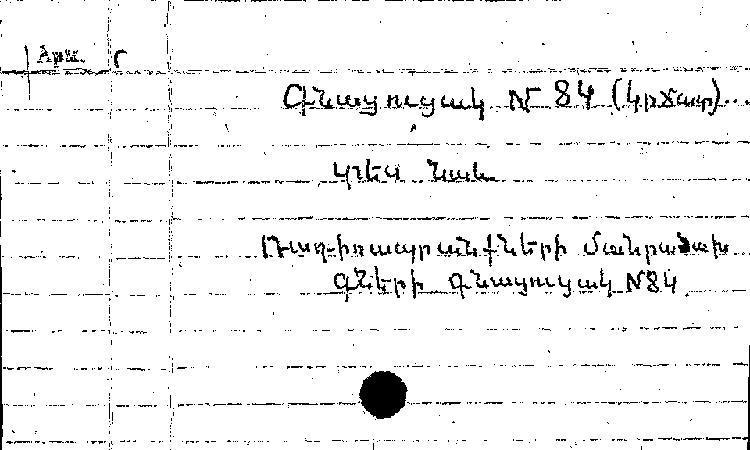 Գնացուցակ N 84 (կրճատ)...
կտես նաև
Ռադիոապրանքների մանրածախ
գների գնացուցակ N84